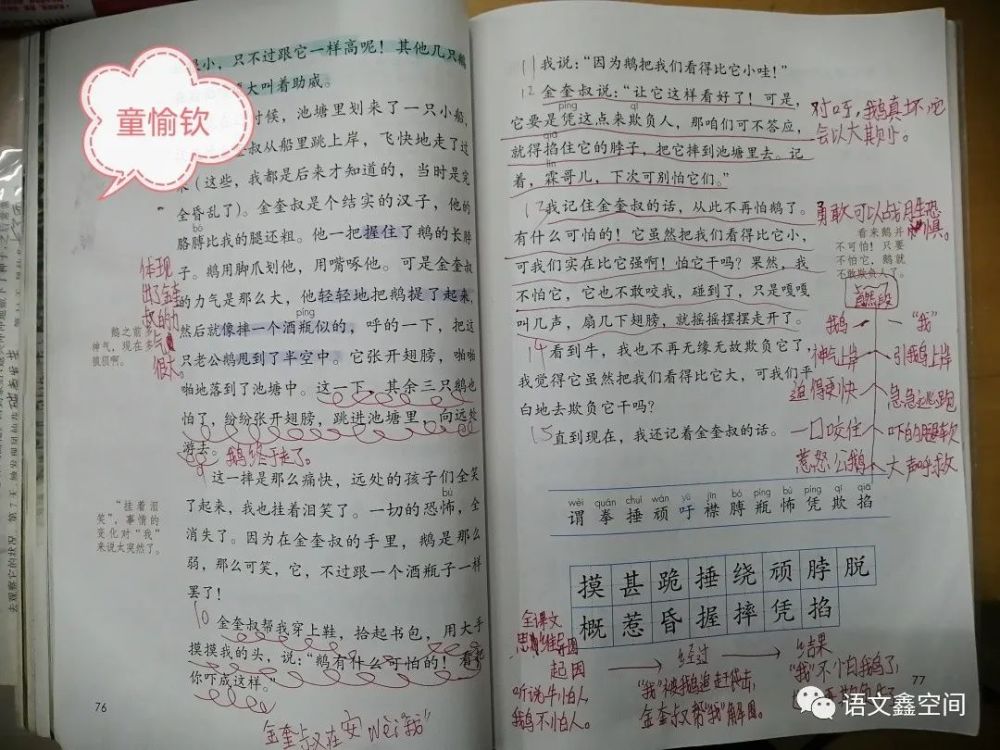 童愉钦
小，只不过跟它一样高呢！其他几只鹅
大叫着助威。
时候，池塘里划来了一只小船，
叔从船里跳上岸，飞快地走了过
（这些，我都是后来才知道的，当时是完
全昏乱了）。金奎叔是个结实的汉子，他的
bó
胳膊比我的腿还粗。他一把握住了鹅的长脖
子。鹅用脚爪划他，用嘴啄他。可是金奎叔
的力气是那么大，他轻轻地把鹅提了起来，
píng
然后就像摔一个酒瓶似的，呼的一下，把这
只老公鹅甩到了半空中。它张开翅膀，啪啪
啪地落到了池塘中。这一下，其余三只鹅也
怕了，纷纷张开翅膀，跳进池塘里，向远处
游去。鹅终于走了。
体现
出了金奎
叔的力
气
很大。
鹅之前多
神气，现在多
狼狈啊。
9
这一摔是那么痛快，远处的孩子们全笑
bù
了起来，我也挂着泪笑了。一切的恐怖，全
消失了。因为在金奎叔的手里，鹅是那么
弱，那么可笑，它，不过跟一个酒瓶子一样
罢了！
“挂着泪
笑”，事情的
变化对“我”
来说太突然了。
10
金奎叔帮我穿上鞋，拾起书包，用大手
摸摸我的头，说：“鹅有什么可怕的！看把
你吓成这样。”
金奎叔在安wèi“我”
76
11我说：“因为鹅把我们看得比它小哇！”
12金奎叔说：“让它这样看好了！可是，
píng qī
它要是凭这点来欺负人，那咱们可不答应，
qiā
就得掐住它的脖子，把它摔到池塘里去。记
着，霖哥儿，下次可别怕它们。”
对呀，我鸟真坏，它
会以大欺小。
13我记住金奎叔的话，从此不再怕鹅了。
有什么可怕的！它虽然把我们看得比它小，
可我们实在比它强啊！怕它干吗？果然，我
不怕它，它也不敢咬我，碰到了，只是嘎嘎
叫几声，扇几下翅膀，就摇摇摆摆走开了。
勇敢可以战胜恐惧。
看来鹅并
不可怕！只要
不怕它，鹅就
不敢欺负人了。
14看到牛，我也不再无缘无故欺负它了，
我觉得它虽然把我们看得比它大，可我们平
白地去欺负它干吗？
15直到现在，我还记着金奎叔的话。
自然段
鹅 “我”
神气上岸 引鹅上岸
迫得更快
一口咬住 吓的腿软
惹怒公鹅 大声呼救
wèi quán chuí wán yū jīn bó píng bù píng qī qiā
谓 拳 捶 顽 吁 襟 膊 瓶 怖 凭 欺 掐
摸 甚 跪 捶 绕 顽 脖 脱
概 惹 昏 握 摔 凭 掐
全课文
思维导图
起因 经过 结果
听说牛怕人，
鹅不怕人。
金奎叔帮“我”解围。
“我”不怕鹅了，
77
语文鑫空间